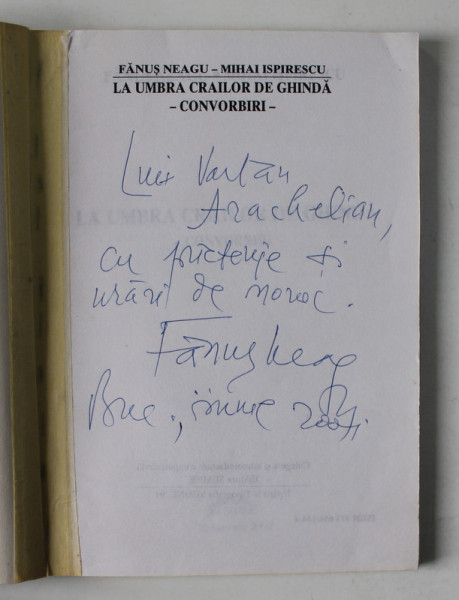 FĂNUȘ NEAGU – MIHAI ISPIRESCU
LA UMBRA CRAILOR DE GHINDĂ
– CONVORBIRI –
Lui Vartan
Arachelian,
cu prietenie și
urări de noroc.
Fănuș Neagu
Buc., iunie